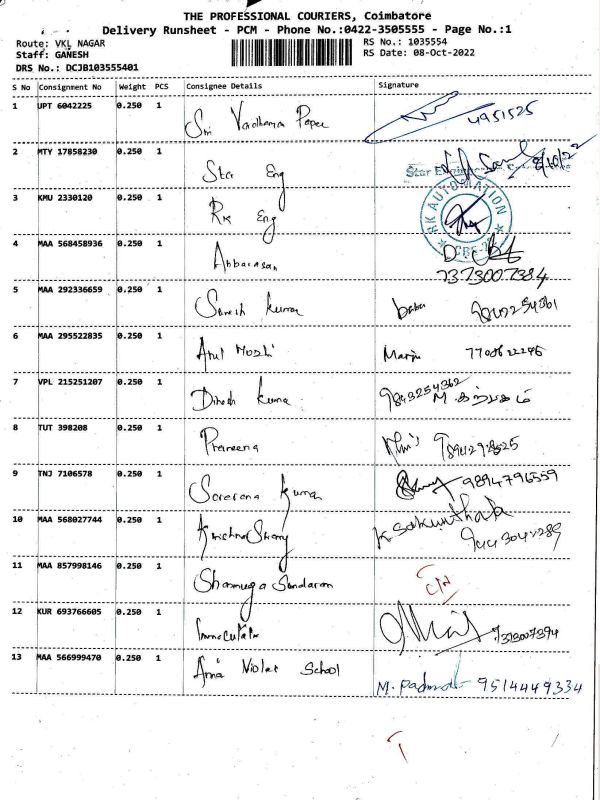 THE PROFESSIONAL COURIERS, Coimbatore
Delivery Runsheet - PCM - Phone No.:0422-3505555 - Page No.:1
Route: VKL NAGAR RS No.: 1035554
Staff: GANESH RS Date: 08-Oct-2022
DRS No.: DCJB103555401
S No Consignment No Weight PCS Consignee Details Signature
1 UPT 6042225 0.250 1 Sri Vardhaman Paper 4951525
2 MTY 17858230 0.250 1 Star Eng
3 KMU 2330120 0.250 1 RK Eng RK AUTOMATION
4 MAA 568458936 0.250 1 7373007384
5 MAA 292336659 0.250 1 Suresh Kumar babu
6 MAA 295522835 0.250 1 Arul Mozhi
7 VPL 215251207 0.250 1 Dinesh Kumar 9843254362
M. கற்பகம்
8 TUT 398208 0.250 1 Praveena
9 TNJ 7106578 0.250 1 Saravana Kumar 9894796559
10 MAA 568027744 0.250 1 K. Sakunthala
11 MAA 857998146 0.250 1 Shanmuga Sundaram
12 KUR 693766605 0.250 1 7373007394
13 MAA 566999470 0.250 1 School M. Padma 9514449334